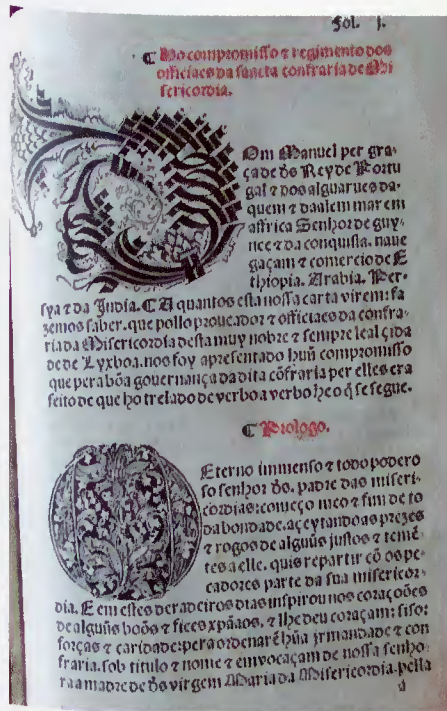 Fol. j.
¶ Do compromisso ⁊ regimento dos
officiaes da sancta confraria de Mi
sericordia.
Om Manuel per gra-
ça de ds̃ Rey de Portu
gal ⁊ dos alguarues da-
quem ⁊ daalem mar em
affrica Senhor de guy-
nee ⁊ da conquista. naue
gaçam ⁊ comercio de E
thiopia. Arabia. Per-
sya ⁊ da Jndia. ¶ A quantos esta nossa carta virem: fa
zemos saber. que pollo prouedor ⁊ officiaes da confra-
ria da Misericordia desta muy nobre ⁊ sempre leal çida
de de Lyxboa. nos foy apresentado huũ compromisso
que pera bõa gouernança da dita cõfraria per elles era
feito de que ho trelado de verbo a verbo he o q̃ se segue.
¶ Prologo.
Eterno immenso ⁊ todo podero
so senhor ds̃. padre das miseri-
cordias: começo meo ⁊ fim de to
da bondade. açeytando as prezes
⁊ rogos de alguũs justos ⁊ temẽ-
tes a elle. quis repartir cõ os pe-
cadores parte da sua misericor-
dia. E em estes deradeiros dias inspirou nos corações
de alguũs boõs ⁊ fiees xp̃aãos. ⁊ lhe deu coraçam: siso:
forças ⁊ caridade: pera ordenarẽ hũa jrmandade ⁊ con
fraria. sob titulo ⁊ nome ⁊ emvocaçam de nossa senho-
ra a madre de ds̃ virgem Maria da Misericordia. pella